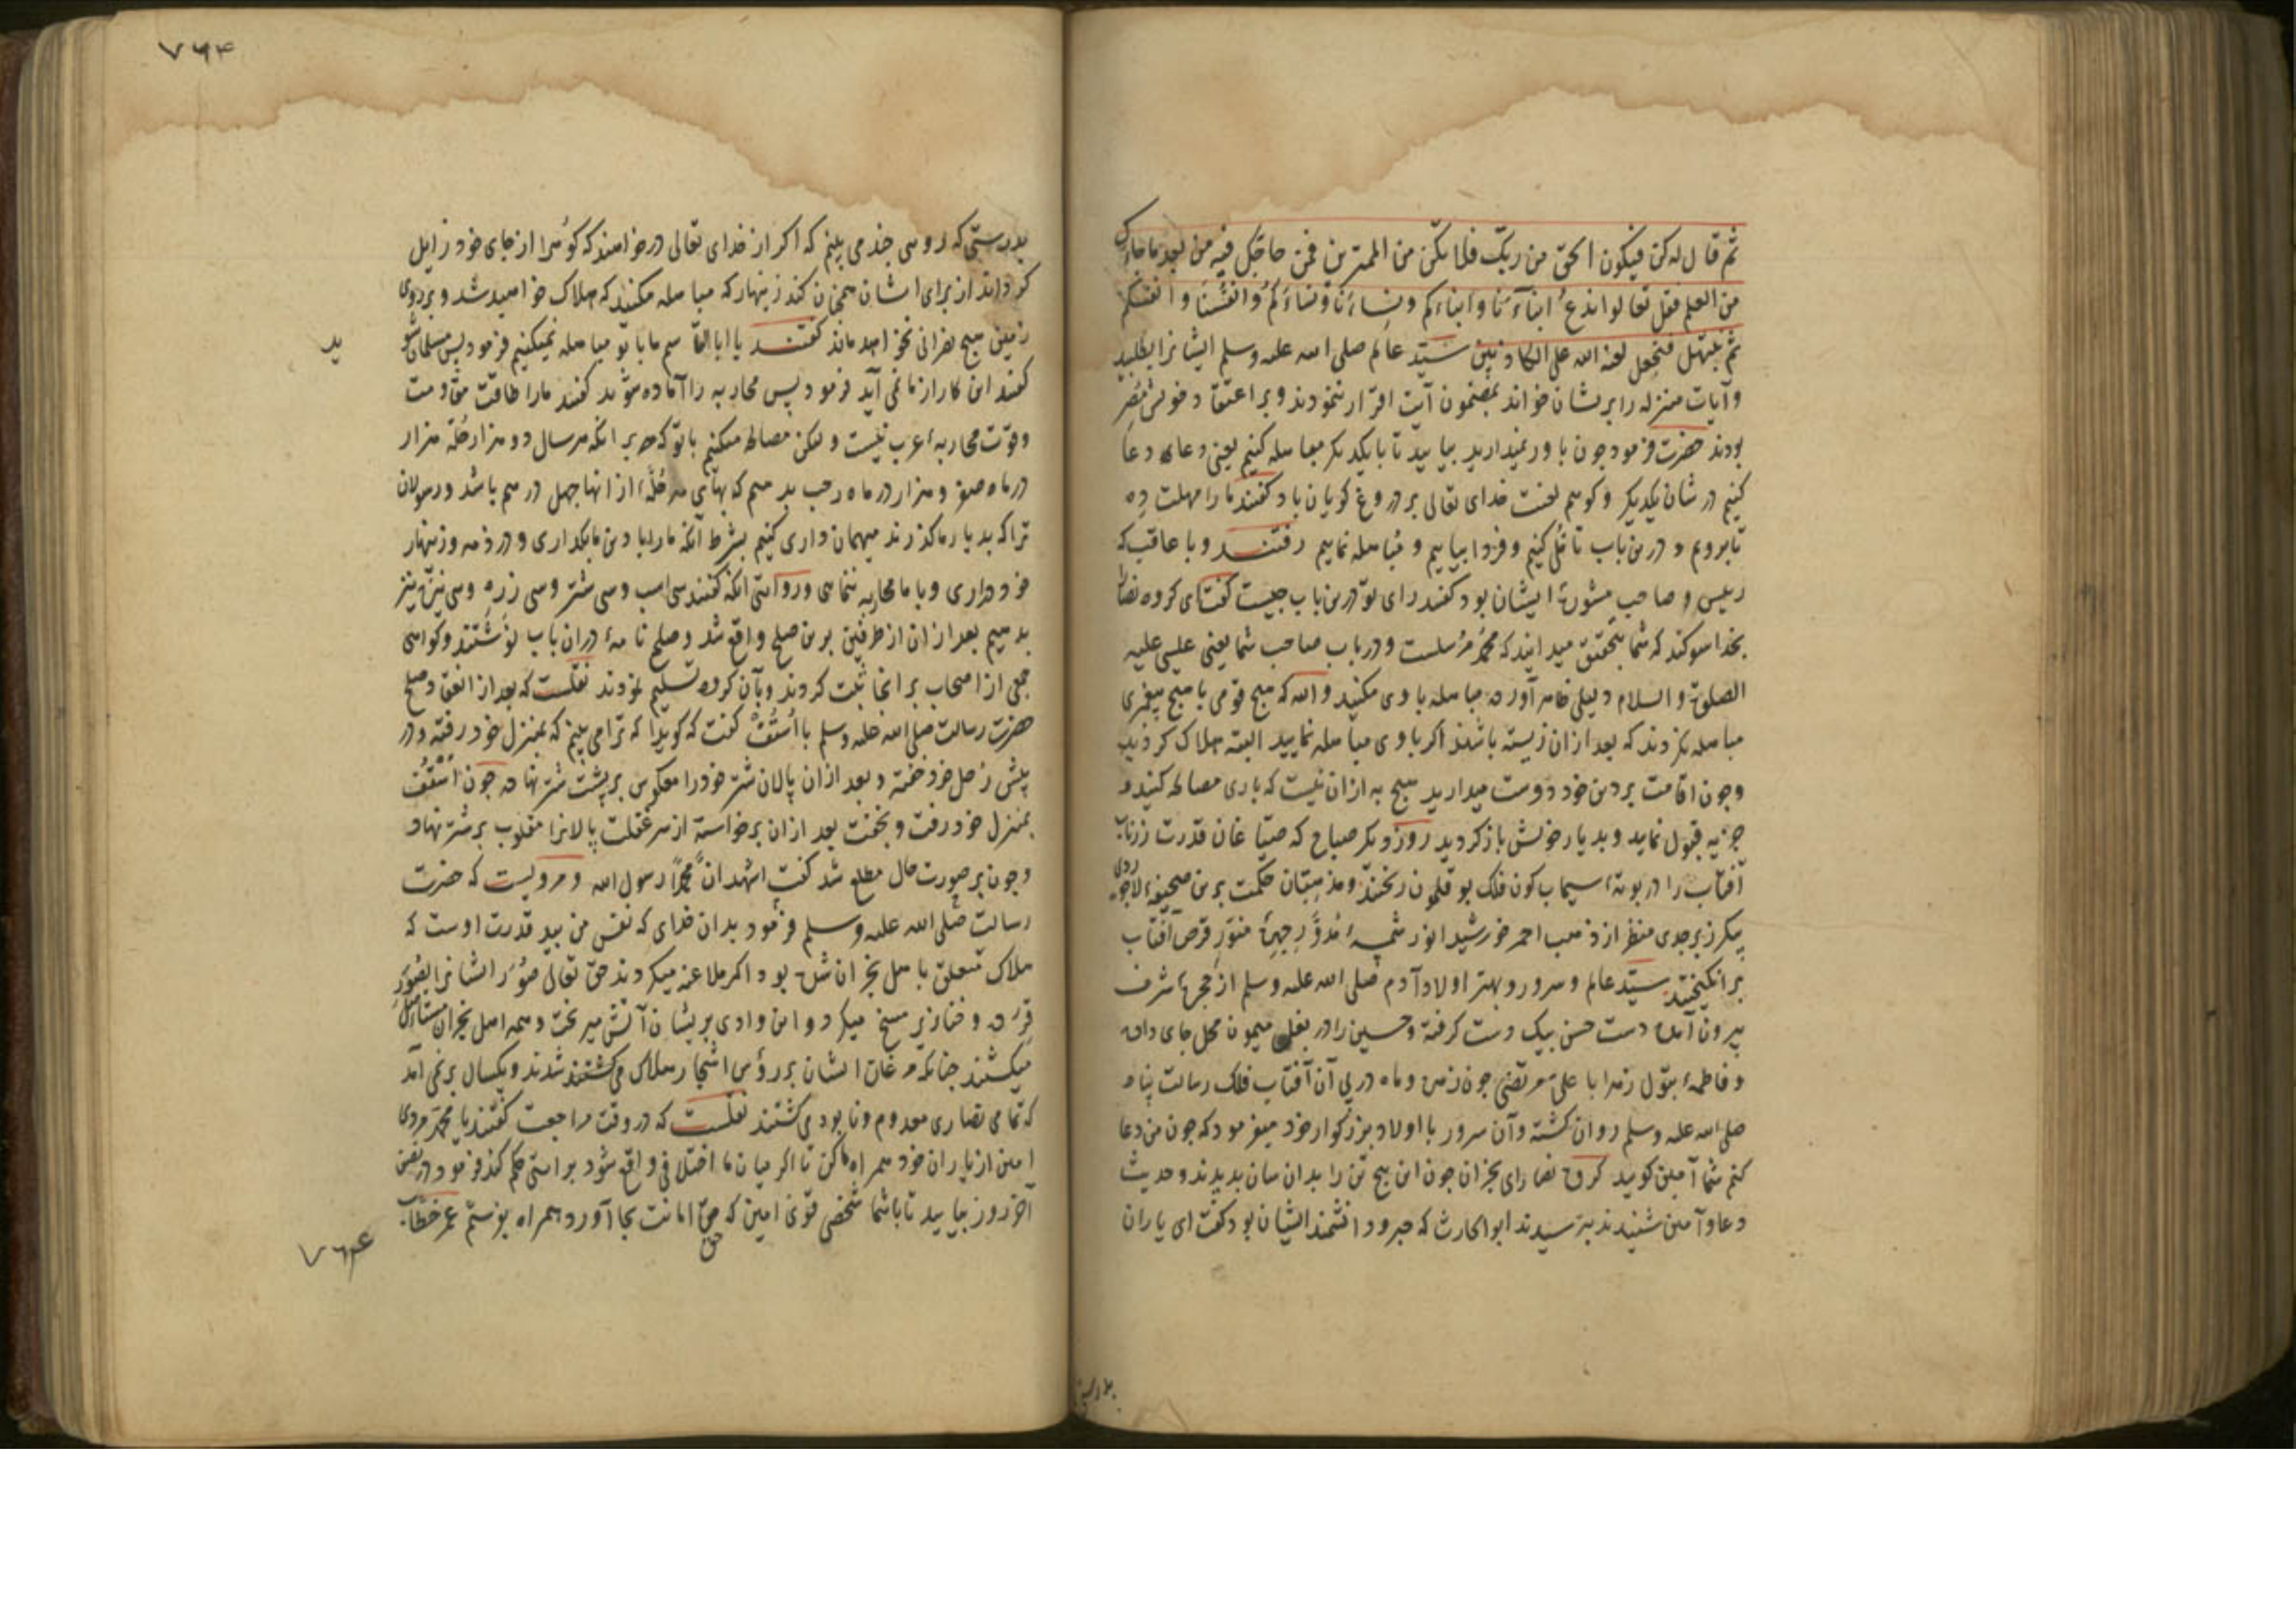 ثم قال له کن فیکون الحق من ربک فلا تکن من الممترین فمن حاجک فیه من بعد ما جاءک
من العلم فقل تعالوا ندع ابنآءَنا وابناءکم ونساءَنا ونساءَکم وانفسنا وانفسکم
ثم نبتهل فنجعل لعنة الله علی الکاذبین سید عالم صلی الله علیه وسلم ایشانرا بطلبید
وآیات منزله را بریشان خواند بمضمون آیت اقرار ننمودند وبر اعتقاد خویش مُصِر
بودند حضرت فرمود جون باور نمیدارید بیایید تا با یکدیکر مباهله کنیم یعنی دعای دعا
کنیم در شان یکدیکر وکوییم لعنت خدای تعالی بر دروغ کویان باد کفتند ما را مهلت ده
تا برویم و درین باب تأمل کنیم وفردا بیاییم و مباهله نماییم رفتند وبا عاقب که
رییس و صاحب مشورة ایشان بود کفتند رای تو درین باب جیست کفت ای کروه نصارا
بخدا سوکند که شما بتحقیق میدانید که محمد مرسلست ودر باب صاحب شما یعنی عیسی علیه
الصلوة والسلام دلیلی ظاهر آورده مباهله با وی مکنید والله که هیج قومی با هیج پیغمبری
مباهله نکردند که بعد ازان زیسته باشند اکر با وی مباهله نمایید البته هلاک کردید
وجون اقامت بر دین خود دوست میدارید هیج به ازان نیست که با وی مصالحه کنید و
جزیه قبول نمایید وبدیار خویش باز کردید روز دیکر صباح که صبّاغان قدرت زرناب
آفتاب را در بوتهٔ سیماب کون فلک بوقلمون ریختند ومذهبّان حکمت برین صحیفهٔ لاجوردی
پیکر زبرجدی منظر از ذهب احمر خورشید انور شمسهٔ مُدوّر جبههٔ منور قرص آفتاب
بر انکیختند سید عالم وسرور وبهتر اولاد آدم صلی الله علیه وسلم از حجرهٔ شرف
بیرون آمده دست حسن بیک دست کرفته وحسین را در بغل میمون محل جای داده
وفاطمهٔ بتول زهرا با علی مرتضی جون زهره وماه در پی آن آفتاب فلک رسالت پناه
صلی الله علیه وسلم روان کشته وآن سرور با اولاد بزرکوار خود میفرمود که جون من دعا
کنم شما آمین کویید کروه نصارای نجران جون این پنج تن را بدان سان بدیدند وحدیث
دعا وآمین شنیدند بترسیدند ابوالحارث که حبر ودانشمند ایشان بود کفت ای یاران
بدرستی
۷۶۴
بدرستی که رویی جند می بینم که اکر از خدای تعالی درخواهند که کوه را از جای خود زایل
کرداند از برای ایشان همجنان کند زینهار که مباهله مکنید که هلاک خواهید شد وبر روی
زمین هیج نصرانی نخواهد ماند کفتند یا ابا القاسم ما با تو مباهله نمیکنیم فرمود پس مسلمان شو
ید
کفتند این کار از ما نمی آید فرمود پس محاربه را آماده شوید کفتند ما را طاقت مقاومت
وقوت محاربهٔ عرب نیست ولیکن مصالحه میکنیم با تو که هر بر آنکه هر سال دو هزار حُلّه هزار
در ماه صفر وهزار در ماه رجب بدهیم که بهای هر حُلّهٔ از آنها جهل درهم باشد ورسولان
ترا که بدیار ما کذرند میهمان داری کنیم بشرط آنکه ما را با دین ما بکذاری ودر ذمه وزینهار
خود داری وبا ما محاربه ننمایی وروایتی آنکه کفتند سی اسب وسی شتر وسی زره وسی نیزه نیز
بدهیم بعد ازان از طرفین برین صلح واقع شد وصلح نامهٔ دران باب نوشتند وکواهی
جمعی از اصحاب بر انجا ثبت کردند وبآن کروه تسلیم نمودند نقلست که بعد از انعقاد صلح
حضرت رسالت صلی الله علیه وسلم با اُسقُف کفت که کوییا که ترا می بینم که بمنزل خود رفتهٔ ودر
پیش رحل خود خفته وبعد ازان پالان شتر خود را معکوس بر پشت شتر نهاده جون اُسقُف
بمنزل خود رفت وبخفت بعد ازان برخواسته از سر غفلت پالانرا مقلوب بر شتر نهاد
وجون بر صورت حال مطلع شد کفت اشهد ان محمدًا رسول الله ومرویست که حضرت
رسالت صلی الله علیه وسلم فرمود بدان خدای که نفس من بید قدرت اوست که
هلاک متعلق باهل نجران شده بود اکر ملاعنه میکردند حق تعالی صُوَر ایشانرا بصُوَر
قِردَه وخنازیر مسخ میکرد واین وادی بریشان آتش میریخت وهمه اهل نجران مستأصل
میکشتند جنانکه مرغان ایشان بر رؤس اشجار هلاک می کشتند شدند ویکسال بر نمی آمد
که تمامی نصاری معدوم ونابود می کشتند نقلست که در وقت مراجعت کفتند یا محمد مردی
امین از یاران خود همراه ما کن تا اکر میان ما اختلافی واقع شود براستی حکم کند فرمود در همین
آخر روز بیایید تا با شما شخصی قوی امین که حق امانت بجا آورد همراه بفرستم عمر خطاب
حق
۷۶۴